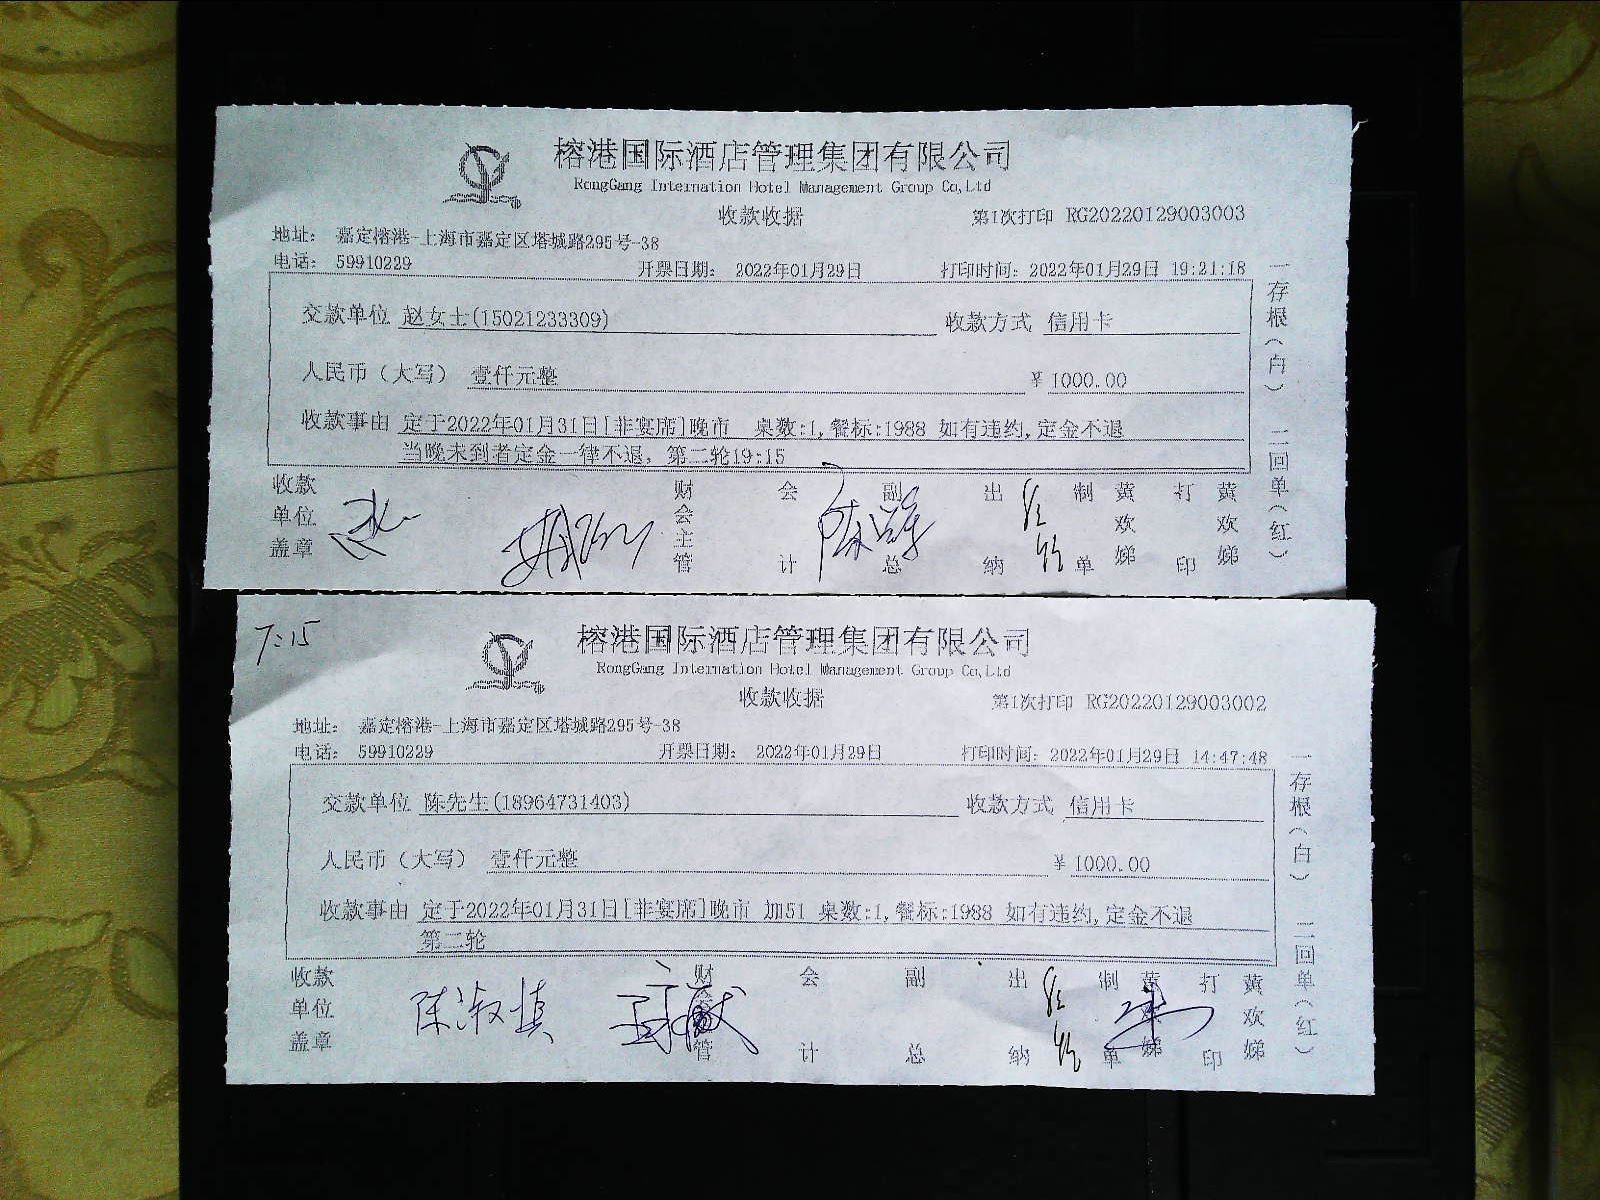 榕港国际酒店管理集团有限公司
RongGang Internation Hotel Management Group Co,Ltd
收款收据
第1次打印 RG20220129003003
地址： 嘉定榕港-上海市嘉定区塔城路295号-38
电话： 59910229 开票日期： 2022年01月29日 打印时间：2022年01月29日 19:21:18
交款单位 赵女士(15021233309) 收款方式 信用卡
人民币（大写） 壹仟元整 ￥ 1000.00
收款事由 定于2022年01月31日[非宴席]晚市 桌数:1,餐标:1988 如有违约,定金不退
当晚未到者定金一律不退，第二轮19:15
收款单位盖章 财会主管 会计 副总 出纳 制单 黄欢娣 打印 黄欢娣
一存根（白） 二回单（红）
7:15
榕港国际酒店管理集团有限公司
RongGang Internation Hotel Management Group Co,Ltd
收款收据
第1次打印 RG20220129003002
地址： 嘉定榕港-上海市嘉定区塔城路295号-38
电话： 59910229 开票日期： 2022年01月29日 打印时间：2022年01月29日 14:47:48
交款单位 陈先生(18964731403) 收款方式 信用卡
人民币（大写） 壹仟元整 ￥ 1000.00
收款事由 定于2022年01月31日[非宴席]晚市 加51 桌数:1,餐标:1988 如有违约,定金不退
第二轮
收款单位盖章 陈淑慎 财会主管 会计 副总 出纳 制单 黄欢娣 打印 黄欢娣
一存根（白） 二回单（红）